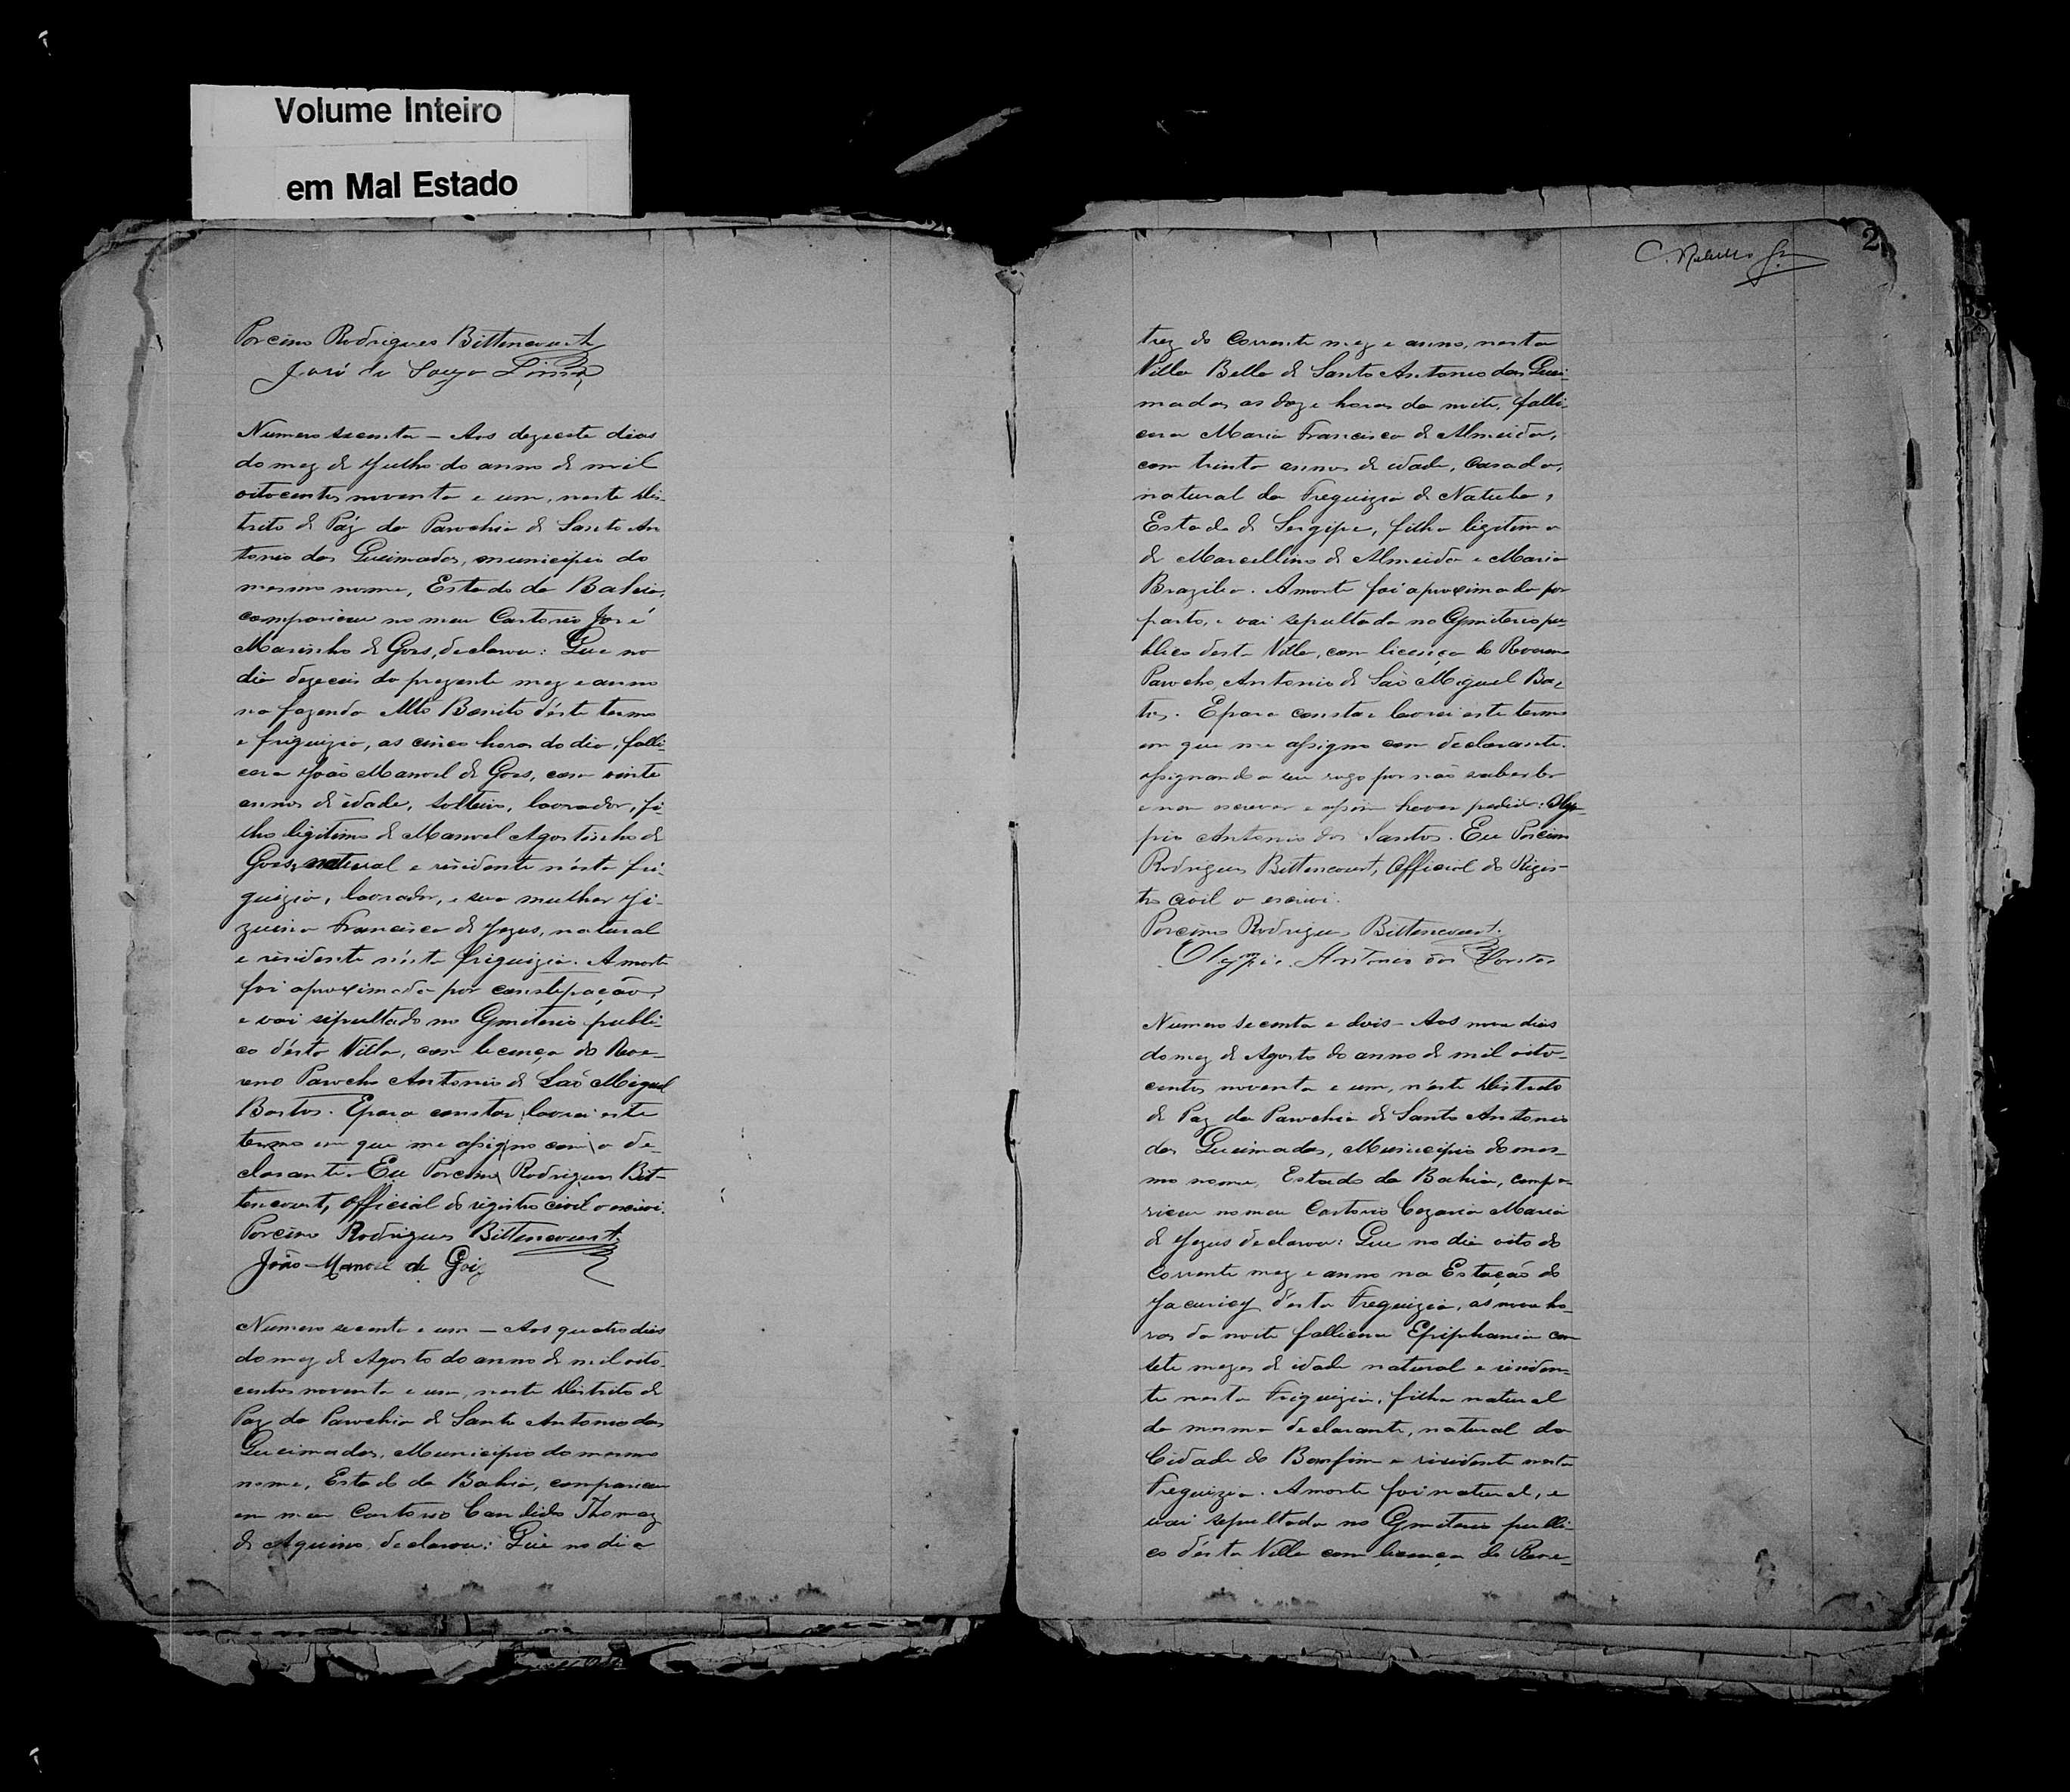 Volume Inteiro
em Mal Estado
Porcino Rodrigues Bittencourt
José de Souza Lima
Numero secenta — Aos dezecete dias
do mez de Julho do anno de mil
oitocentos noventa e um, neste Dis-
trito de Páz da Parochia de Santo An
tonio das Queimadas, municipio do
mesmo nome, Estado da Bahia,
compariceu no meu Cartorio José
Marinho de Goes, declarou: Que no
dia dezeceis do prezente mez e anno
na fazenda Alto Bonito déste termo
e friguizia, as cinco horas do dia, falli-
cera João Manoel de Goes, com vinte
annos de idade, solteiro, lavrador, fi-
lho ligitimo de Manoel Agostinho de
Goes, natural e risidente nésta fri-
guizia, lavrador, e sua mulher
Francisca de Jezus, natural
e risidente nésta friguizia. A morte
foi aproximada por constipação,
e vai sipultado no Cymiterio publi-
co désta Villa, com licença do Reve-
reno Parocho Antonio de São Miguel
Bastos. E para constar lavrei este
termo em que me assigno com o de-
clarante. Eu Porcino Rodrigues Bit-
tencourt, Official do registro civil o escrivi.
Porcino Rodrigues Bittencourt
João Manoel de Goiz
Numero secenta e um — Aos quatro dias
do mez de Agosto do anno de mil oito-
centos noventa e um, neste Distrito de
Paz da Parochia de Santo Antonio das
Queimadas, Municipio do mesmo
nome, Estado da Bahia, compariceu
em meu Cartorio Candido Thomaz
de Aquino, declarou: Que no dia
2
trez do Corrente mez e anno, nesta
Villa Bella de Santo Antonio das Quei-
madas as doze horas da noite, falli-
cera Maria Francisca de Almeida,
com trinta annos de idade, Casada,
natural da Freguizia de Natuba,
Estado de Sergipe, filha ligitima
de Marcellino de Almeida e Maria
Brazilia. A morte foi aproximada por
parto, e vai sepultada no Cymiterio pu-
blico desta Villa, com licença do Reveren
Parocho, Antonio de São Miguel Bas-
tos. E para constar lavrei este termo
em que me assigno com declarante.
assignando a seu rogo por não saber ler
e nem escrever e assim haver pedido: Olym-
pio Antonio dos Santos. Eu Porcino
Rodrigues Bittencourt, Official do Regis-
tro Civil o escrivi.
Porcino Rodrigues Bittencourt.
Olympio Antonio dos Santos
Numero secenta e dois — Aos nove dias
do mez de Agosto do anno de mil oito-
centos noventa e um, néste Distrito
de Paz da Parochia de Santo Antonio
das Queimadas, Municipio do mes-
mo nome, Estado da Bahia, compa-
riceu no meu Cartorio Cezaria Maria
de Jezus declarou: Que no dia oito do
Corrente mez e anno na Estação do
Jacuricy désta Freguizia, as nove ho-
ras da noite fallicera Epiphania com
sete mezes de idade natural e residen-
te nesta Friguizia, filha natural
da mesma declarante, natural da
Cidade do Bomfim e risidente nesta
Freguizia. A morte foi natural, e
vai sepultada no Cymiterio publi-
co désta Villa com licença do Reve-